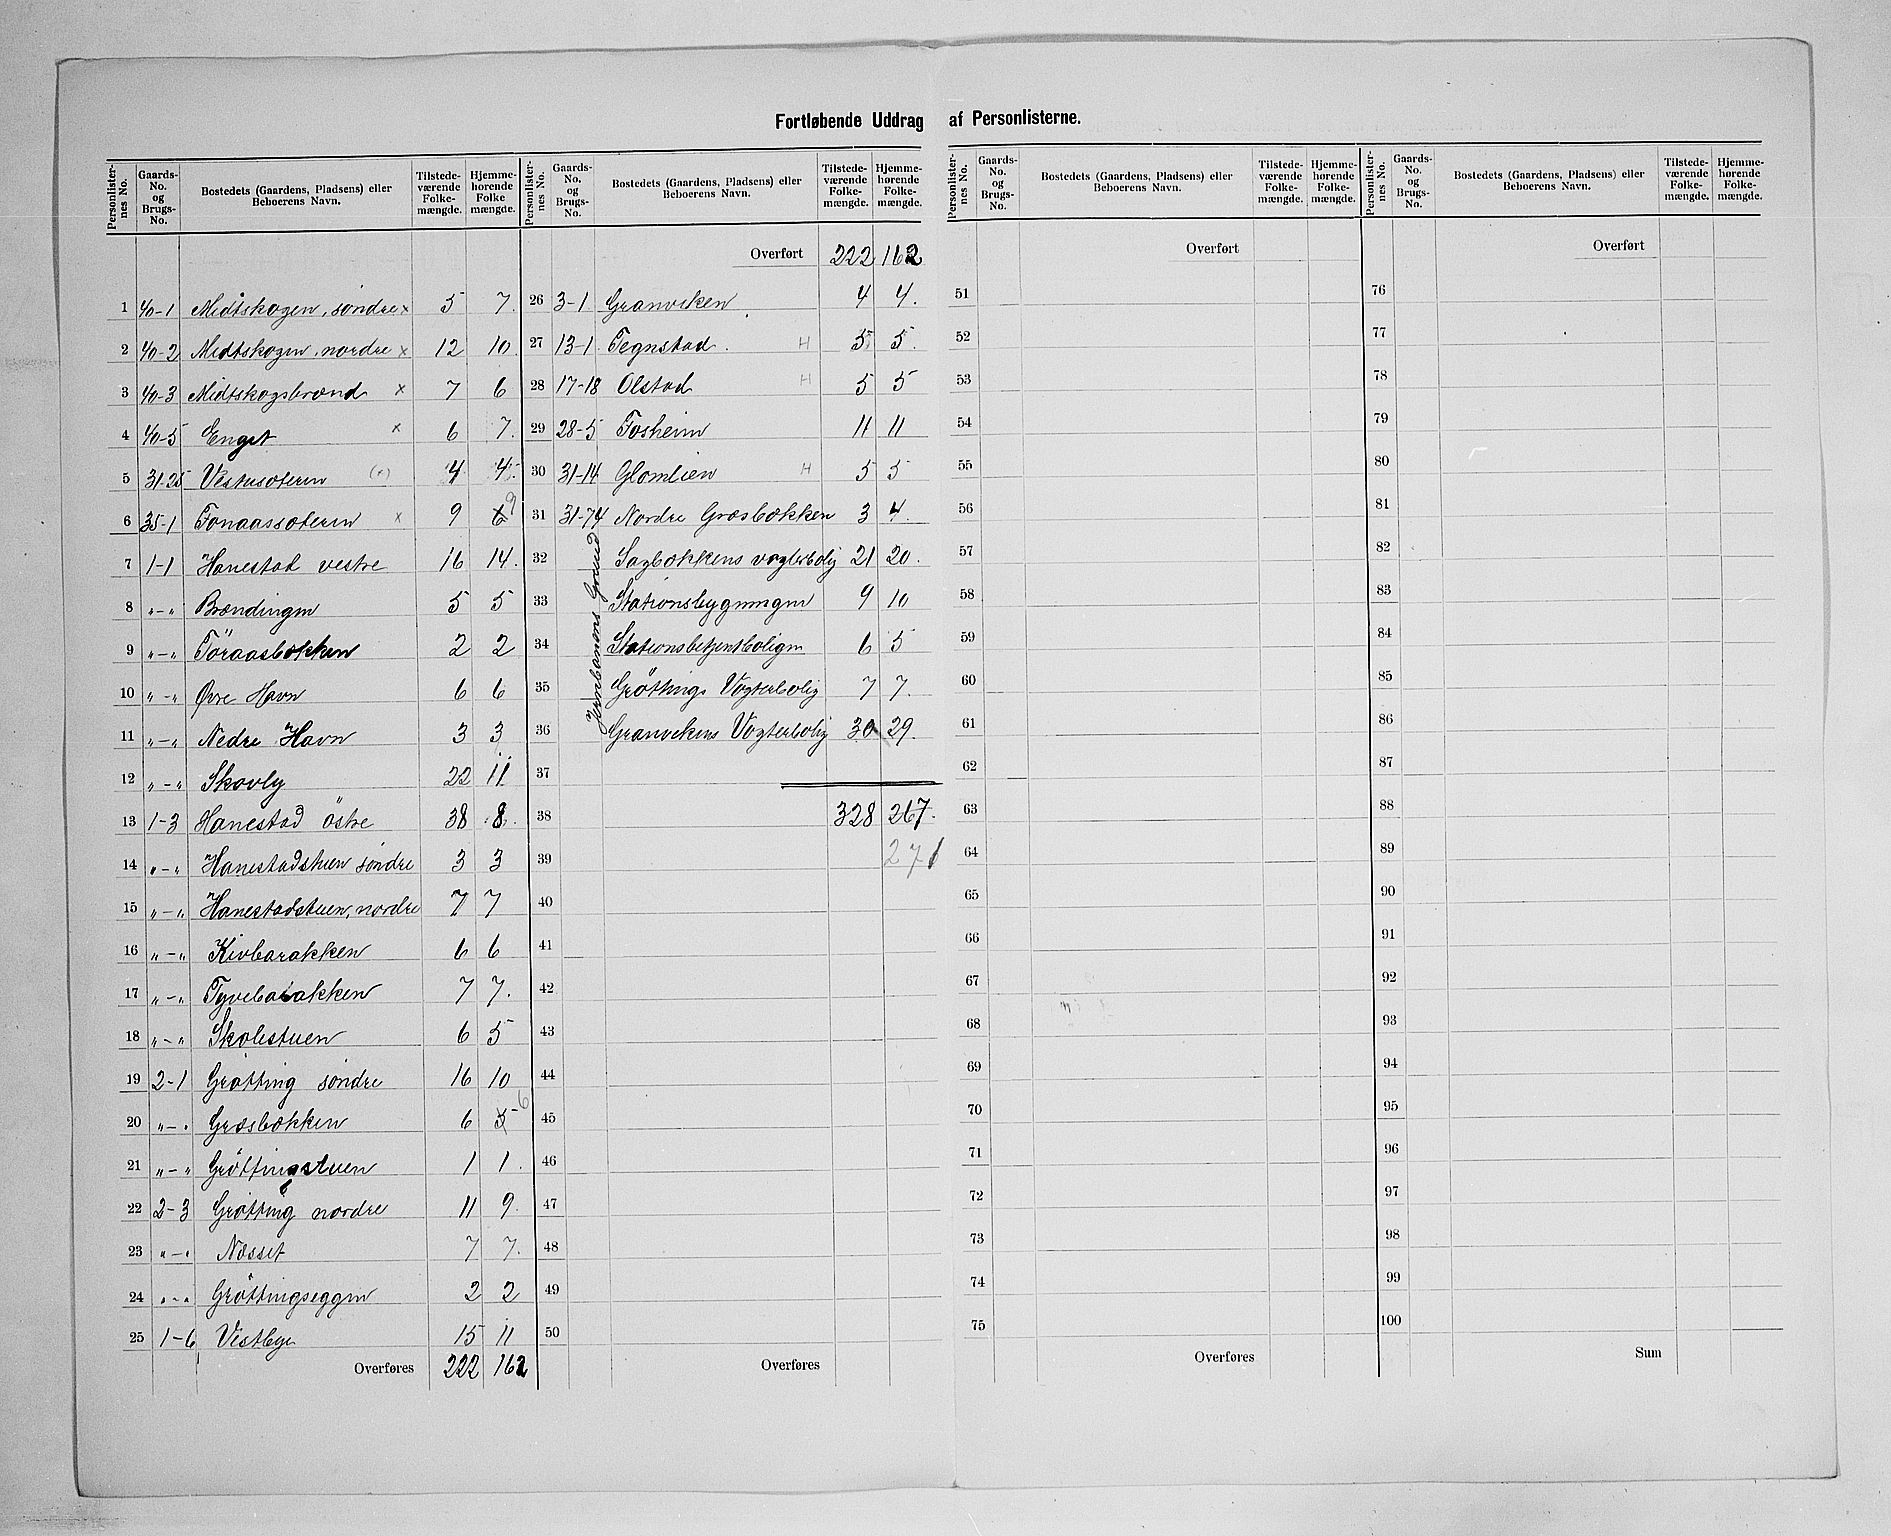 Fortløbende Uddrag af Personlisterne.
Personlisternes No. | Gaards-No. og Brugs-No. | Bostedets (Gaardens, Pladsens) eller Beboerens Navn. | Tilstedeværende Folkemængde. | Hjemmehørende Folkemængde.
1 40-1 Midtskogen, söndre x 5 7.
2 40-2 Midtskogen, nordre x 12 10.
3 40-3 Midtskogsbrænd x 7 6
4 40-5 Enget x 6 7.
5 31-25 Vestusæteren (x) 4 4.
6 35-1 Fonaassæteren x 9 6 9
7 1-1 Hanestad vestre 16 14.
8 "-" Brændingen 5 5
9 "-" Töraasbækken 2 2
10 "-" Øvre Havn 6 6
11 "-" Nedre Havn 3 3
12 "-" Skovly 22 11
13 1-3 Hanestad östre 38 8.
14 "-" Hanestadstuen söndre 3 3
15 "-" Hanestadstuen, nordre 7 7
16 "-" Kivbarakken 6 6
17 "-" Tyvebarakken 7 7.
18 "-" Skolestuen 6 5
19 2-1 Grötting söndre 16 10
20 "-" Græsbækken 6 5 6
21 "-" Gröttingstuen 1 1.
22 2-3 Grötting nordre 11 9.
23 "-" Næsset 7 7.
24 "-" Gröttingseggen 2 2
25 1-6 Vestbye 15 11
Overføres 222 162
Personlisternes No. | Gaards-No. og Brugs-No. | Bostedets (Gaardens, Pladsens) eller Beboerens Navn. | Tilstedeværende Folkemængde. | Hjemmehørende Folkemængde.
Overført 222 162
26 3-1 Granviken 4 4.
27 13-1 Tegnstad. H 5 5.
28 17-18 Olstad H 5 5
29 28-5 Fosheim 11 11
30 31-14 Glomlien H 5 5
31 31-74 Nordre Græsbækken 3 4.
Jernbanens Grund
32 Sagbækkens vogterbolig 21 20.
33 Stationsbygningen 9 10
34 Stationsbetjentboligen 6 5
35 Gröttings Vogterbolig 7 7
36 Granvikens Vogterbolig 30 29.
37
38 328 267.
39 271
40
41
42
43
44
45
46
47
48
49
50
Overføres
Personlisternes No. | Gaards-No. og Brugs-No. | Bostedets (Gaardens, Pladsens) eller Beboerens Navn. | Tilstedeværende Folkemængde. | Hjemmehørende Folkemængde.
Overført
51
52
53
54
55
56
57
58
59
60
61
62
63
64
65
66
67
68
69
70
71
72
73
74
75
Overføres
Personlisternes No. | Gaards-No. og Brugs-No. | Bostedets (Gaardens, Pladsens) eller Beboerens Navn. | Tilstedeværende Folkemængde. | Hjemmehørende Folkemængde.
Overført
76
77
78
79
80
81
82
83
84
85
86
87
88
89
90
91
92
93
94
95
96
97
98
99
100
Sum